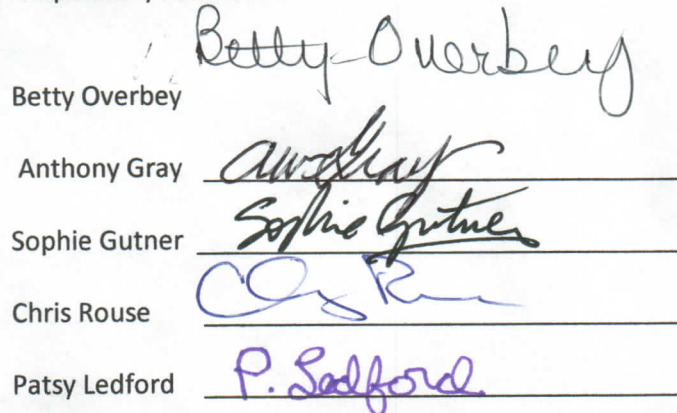 Betty Overbey
Betty Overbey
Anthony Gray
Sophie Gutner Sophie Gutner
Chris Rouse
Patsy Ledford P. Ledford